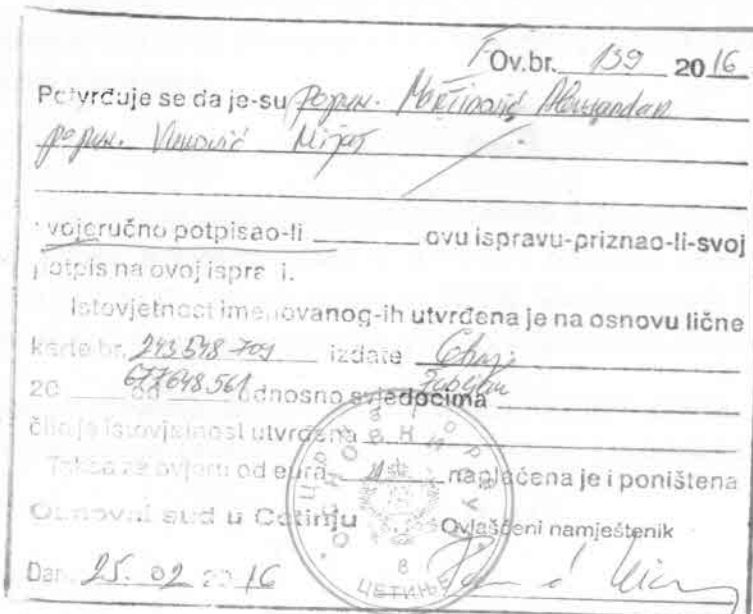 Ov.br. 139 2016
Potvrđuje se da je-su popun. Martinović Aleksandar
popun. Vuković Mijat
svojeručno potpisao-li ________ ovu ispravu-priznao-li-svoj
potpis na ovoj ispravi.
Istovjetnost imenovanog-ih utvrđena je na osnovu lične
karte br. 243548709 izdate
20 ____ od 677648561 odnosno svjedocima
čija je istovjetnost utvrđena
Taksa za ovjeru od eura ____ naplaćena je i poništena
Osnovni sud u Cetinju Ovlašćeni namještenik
Dan. 25. 02 2016
ЦЕТИЊЕ